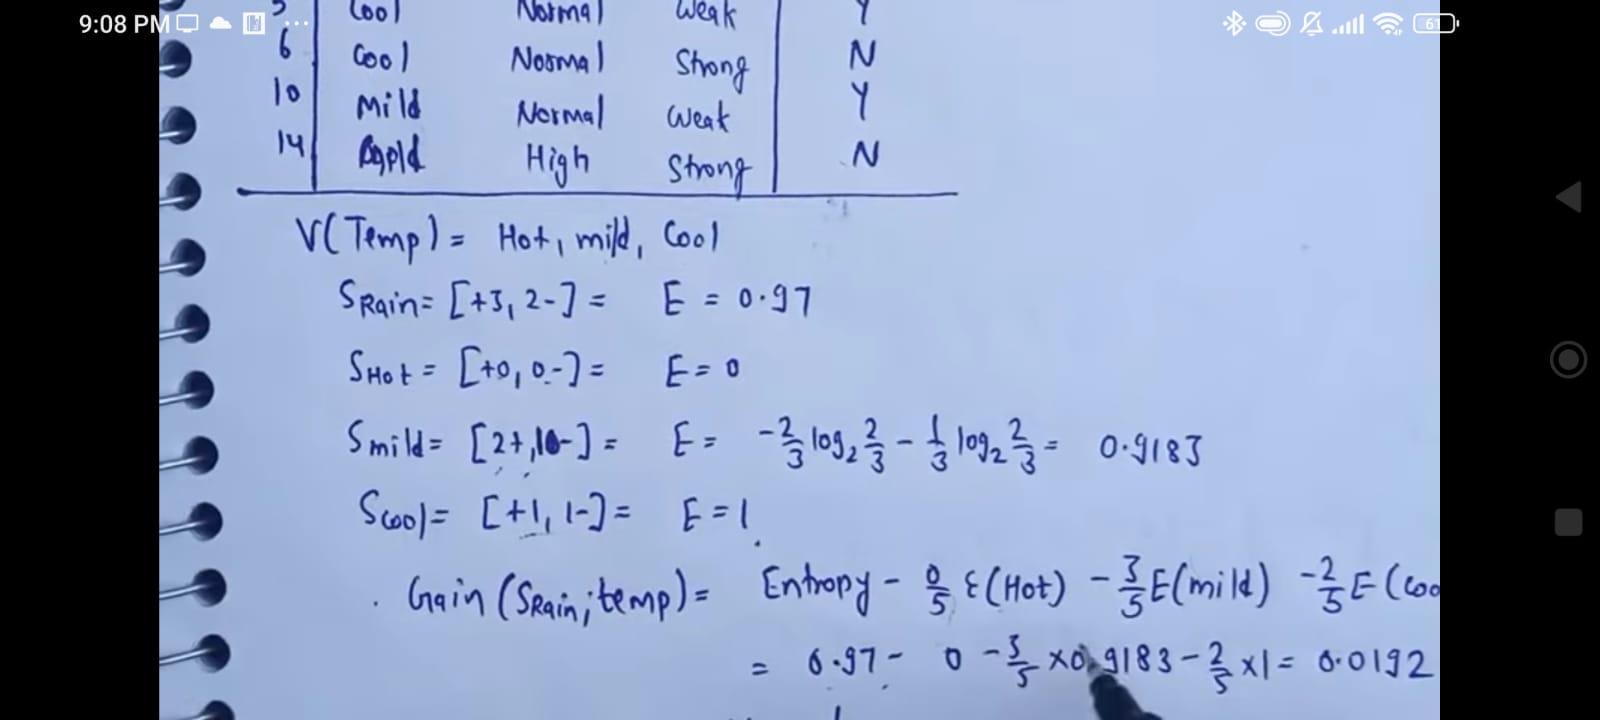 9:08 PM 61
5 Cool Normal Weak Y
6 Cool Normal Strong N
10 Mild Normal Weak Y
14 High Strong N
V(Temp) = Hot, mild, Cool
SRain = [+3, 2-] = E = 0.97
SHot = [+0, 0-] = E = 0
Smild = [2+, 1-] = E = -2/3 log2 2/3 - 1/3 log2 2/3 = 0.9183
Scool = [+1, 1-] = E = 1
Gain (SRain; temp) = Entropy - 0/5 E(Hot) - 3/5 E(mild) - 2/5 E(Coo
= 0.97 - 0 - 3/5 x0.9183 - 2/5 x1 = 0.0192